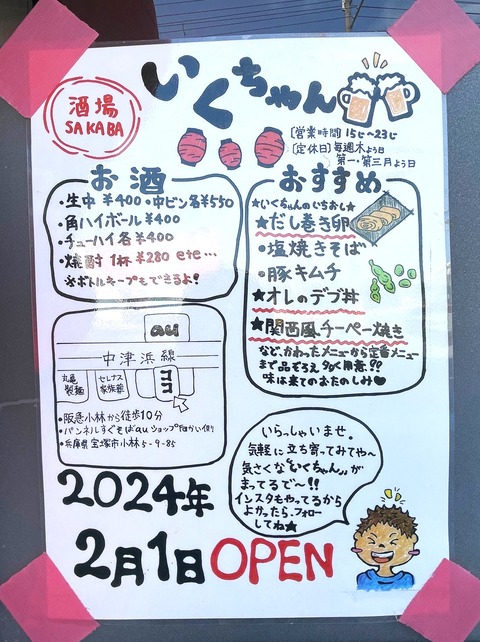 酒場
SAKABA
いくちゃん
[営業時間] 15じ〜23じ
[定休日] 毎週木よう日
第一・第三月よう日
お酒
・生中 ¥400 ・中ビン各¥550
・角ハイボール ¥400
・チューハイ各 ¥400
・焼酎 1杯 ¥280 etc…
※ボトルキープもできるよ!
おすすめ
★いくちゃんのいちおし★
★だし巻き卵
・塩焼きそば
・豚キムチ
★オレのデブ丼
★関西風チーペー焼き
など、かわったメニューから定番メニュー
まで品ぞろえ多く用意!!
味は来てのおたのしみ♡
au
中津浜線
丸亀製麺
セレナス家族葬
ココ
・阪急小林から徒歩10分
・トンネルすぐそばauショップ向かい側
・兵庫県宝塚市小林5-9-85
いらっしゃいませ。
気軽に立ち寄ってみてや〜
気さくな"いくちゃん"が
まってるで〜!!
インスタもやってるから
よかったら、フォロー
してね★
2024年
2月1日OPEN